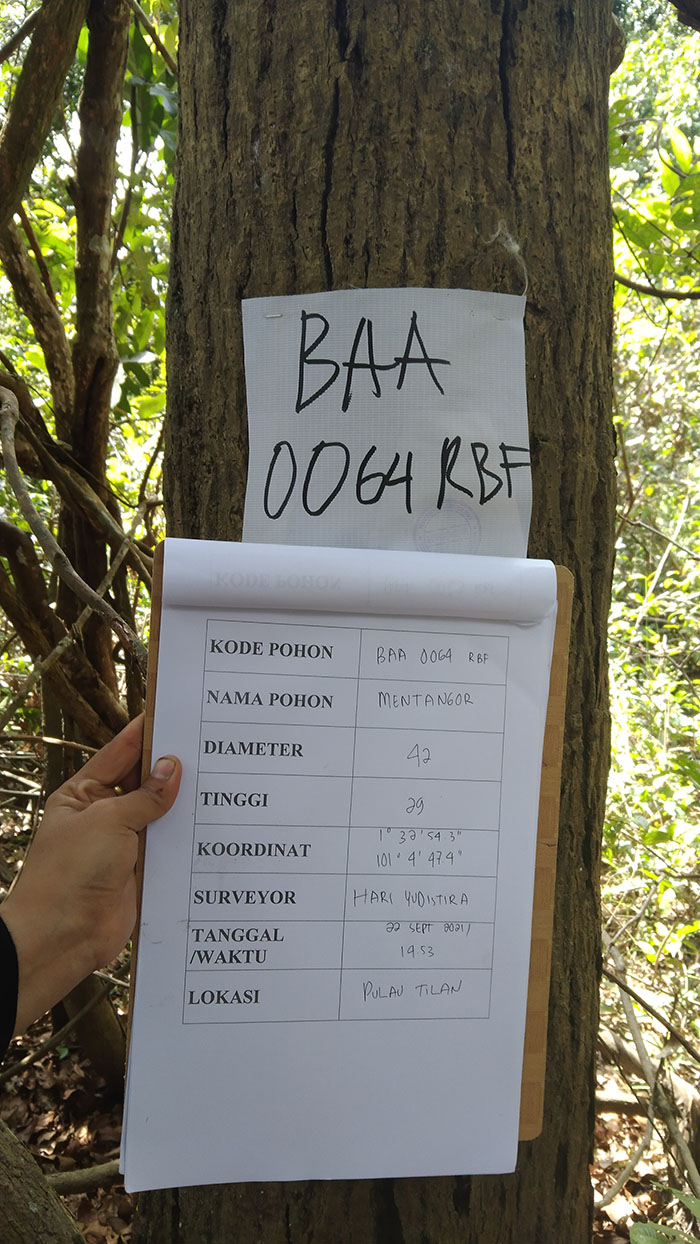 BAA
0064 RBF
KODE POHON BAA 0064 RBF
NAMA POHON MENTANGOR
DIAMETER 42
TINGGI 29
KOORDINAT 1° 32' 54.3"
101° 4' 47.4"
SURVEYOR HARI YUDISTIRA
TANGGAL 22 SEPT 2021/
/WAKTU 14.53
LOKASI PULAU TILAN